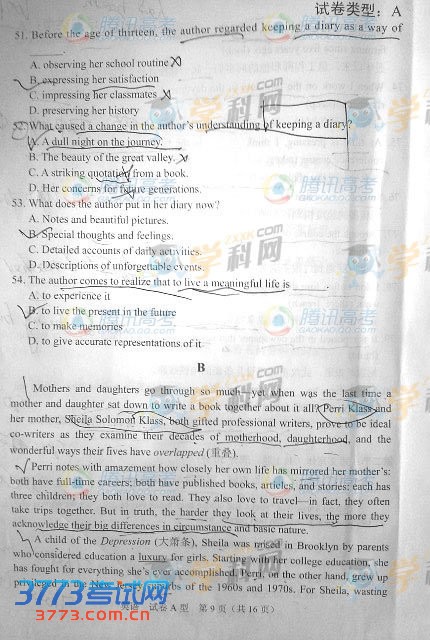 试卷类型：A
51. Before the age of thirteen, the author regarded keeping a diary as a way of
A. observing her school routine
B. expressing her satisfaction
C. impressing her classmates
D. preserving her history
52. What caused a change in the author's understanding of keeping a diary?
A. A dull night on the journey.
B. The beauty of the great valley.
C. A striking quotation from a book.
D. Her concerns for future generations.
53. What does the author put in her diary now?
A. Notes and beautiful pictures.
B. Special thoughts and feelings.
C. Detailed accounts of daily activities.
D. Descriptions of unforgettable events.
54. The author comes to realize that to live a meaningful life is ____.
A. to experience it
B. to live the present in the future
C. to make memories
D. to give accurate representations of it
B
Mothers and daughters go through so much—yet when was the last time a
mother and daughter sat down to write a book together about it all? Perri Klass and
her mother, Sheila Solomon Klass, both gifted professional writers, prove to be ideal
co-writers as they examine their decades of motherhood, daughterhood, and the
wonderful ways their lives have overlapped (重叠).
Perri notes with amazement how closely her own life has mirrored her mother's:
both have full-time careers; both have published books, articles, and stories; each has
three children; they both love to read. They also love to travel—in fact, they often
take trips together. But in truth, the harder they look at their lives, the more they
acknowledge their big differences in circumstance and basic nature.
A child of the Depression (大萧条), Sheila was raised in Brooklyn by parents
who considered education a luxury for girls. Starting with her college education, she
has fought for everything she's ever accomplished. Perri, on the other hand, grew up
privileged in the New Jersey suburbs of the 1960s and 1970s. For Sheila, wasting
英语 试卷 A 型 第 9 页（共 16 页）
3773考试网
3773.com.cn
腾讯高考
GAOKAO.QQ.COM
学科网